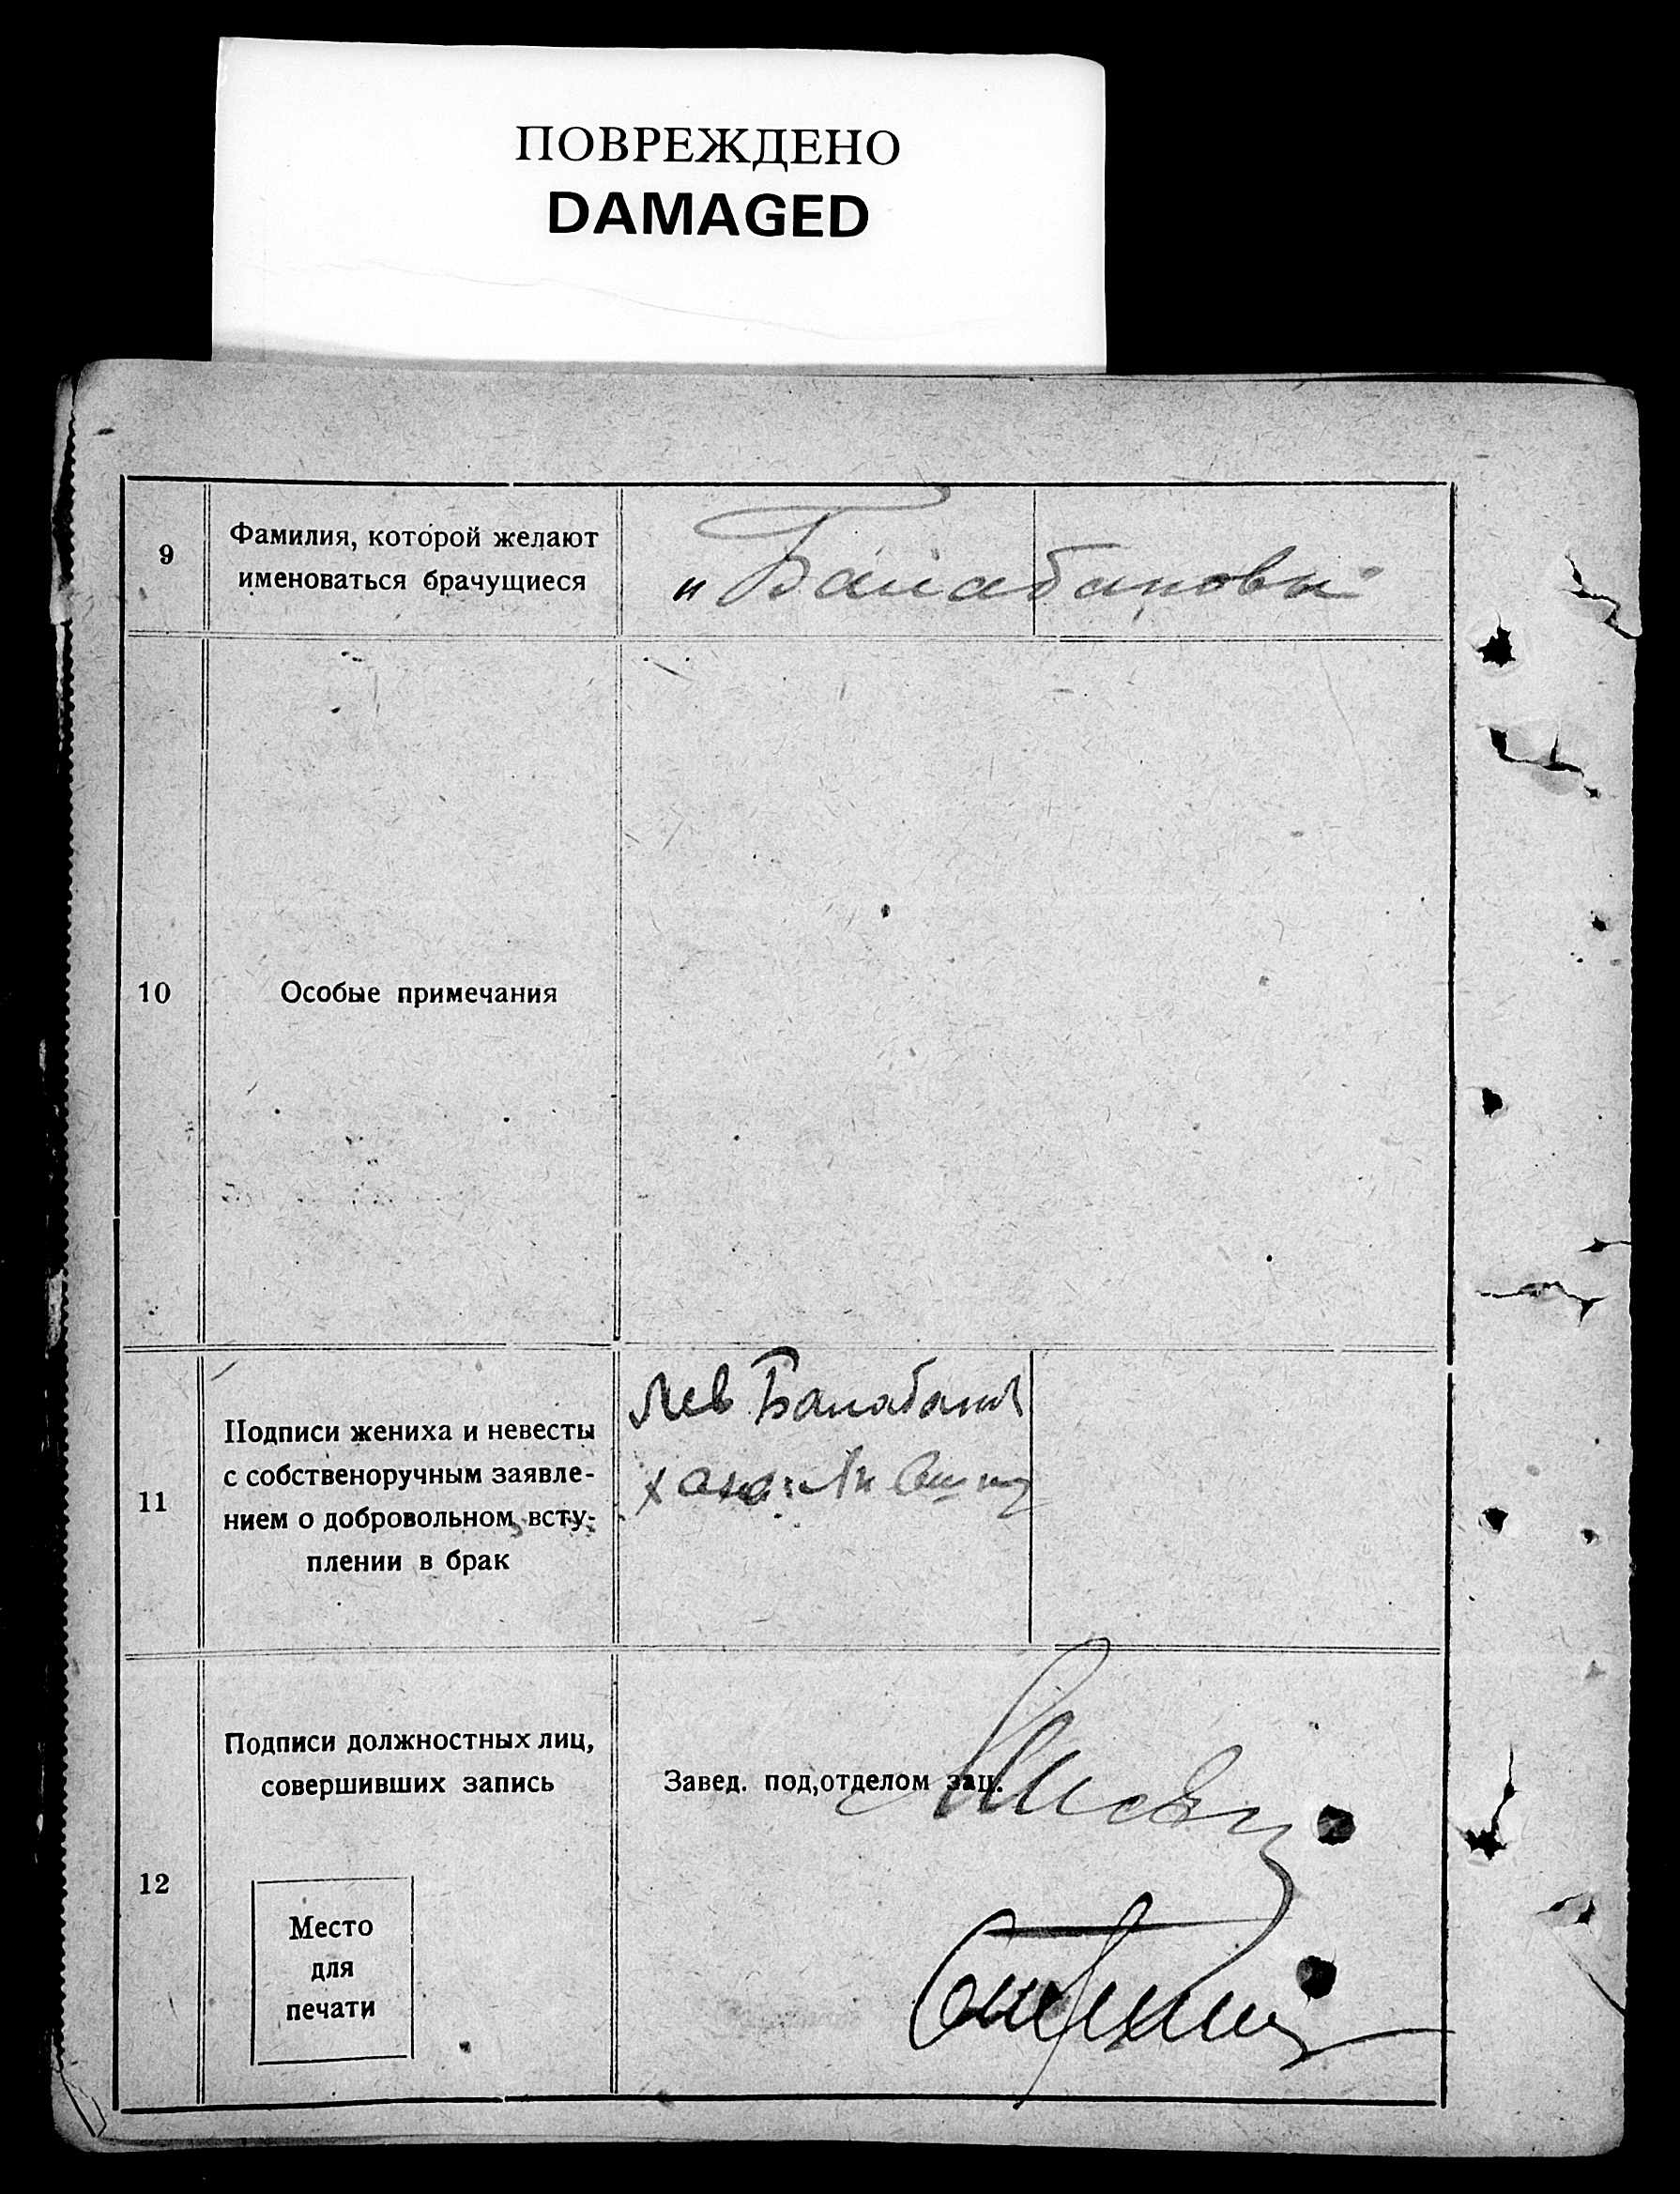 ПОВРЕЖДЕНО
DAMAGED
9
Фамилия, которой желают
именоваться брачущиеся
„Балабановы“
10
Особые примечания
11
Подписи жениха и невесты
с собственоручным заявле-
нием о добровольном всту-
плении в брак
Лев Балабанов
Хана
12
Подписи должностных лиц,
совершивших запись
Завед. под,отделом зац.
Место
для
печати